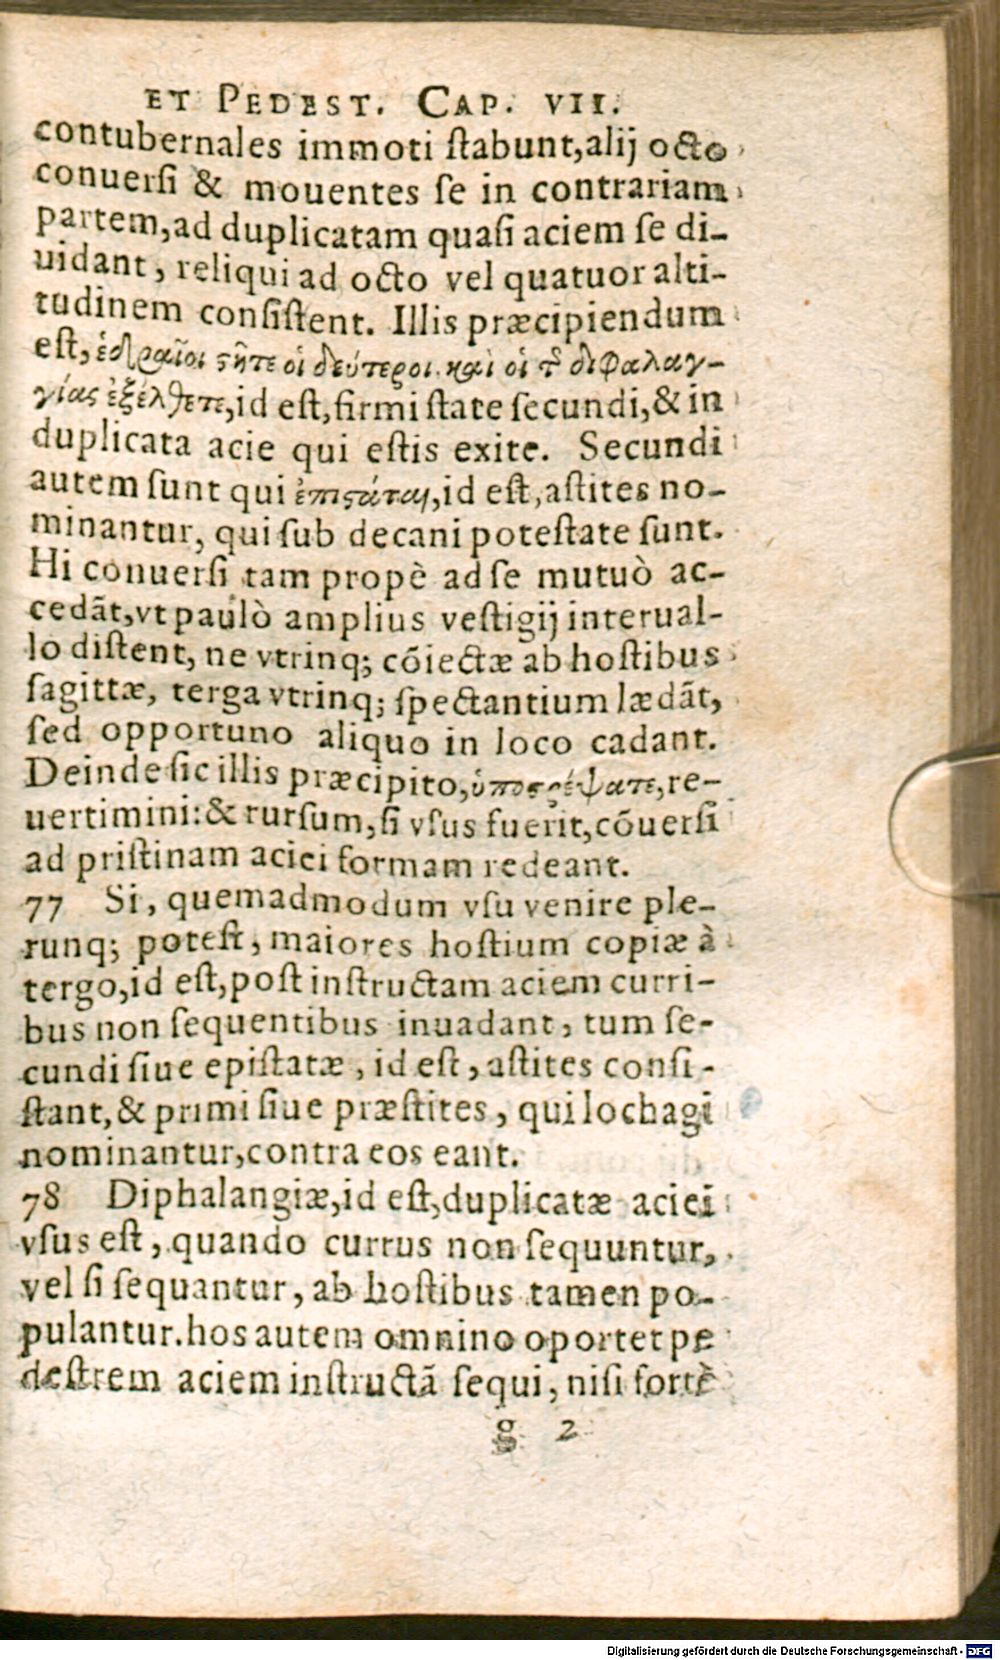 ET PEDEST. CAP. VII.
contubernales immoti ſtabunt,alij octo
conuerſi & mouentes ſe in contrariam
partem,ad duplicatam quaſi aciem ſe di-
uidant, reliqui ad octo vel quatuor alti-
tudinem conſiſtent. Illis præcipiendum
eſt,ἑδραῖοι ϛῆτε οἱ δεύτεροι. καὶ οἱ τ διφαλαγ-
γίας ἐξέλθετε,id eſt,firmi ſtate ſecundi,& in
duplicata acie qui eſtis exite. Secundi
autem ſunt qui ἐπιϛάται,id eſt,aſtites no-
minantur, qui ſub decani poteſtate ſunt.
Hi conuerſi tam propè ad ſe mutuò ac-
cedãt,vt paulò amplius veſtigij interual-
lo diſtent, ne vtrinq; cõiectæ ab hoſtibus
ſagittæ, terga vtrinq; ſpectantium lædãt,
ſed opportuno aliquo in loco cadant.
Deinde ſic illis præcipito,ὑποϛρέψατε,re-
uertimini:& rurſum,ſi vſus fuerit,cõuerſi
ad priſtinam aciei formam redeant.
77 Si, quemadmodum vſu venire ple-
runq; poteſt, maiores hoſtium copiæ à
tergo,id eſt,poſt inſtructam aciem curri-
bus non ſequentibus inuadant, tum ſe-
cundi ſiue epiſtatæ, id eſt, aſtites conſi-
ſtant,& primi ſiue præſtites, qui lochagi
nominantur,contra eos eant.
78 Diphalangiæ,id eſt,duplicatæ aciei
vſus eſt, quando currus non ſequuntur,
vel ſi ſequantur, ab hoſtibus tamen po-
pulantur.hos autem omnino oportet pe
deſtrem aciem inſtructã ſequi, niſi fortè
g 2
Digitalisierung gefördert durch die Deutsche Forschungsgemeinschaft - DFG